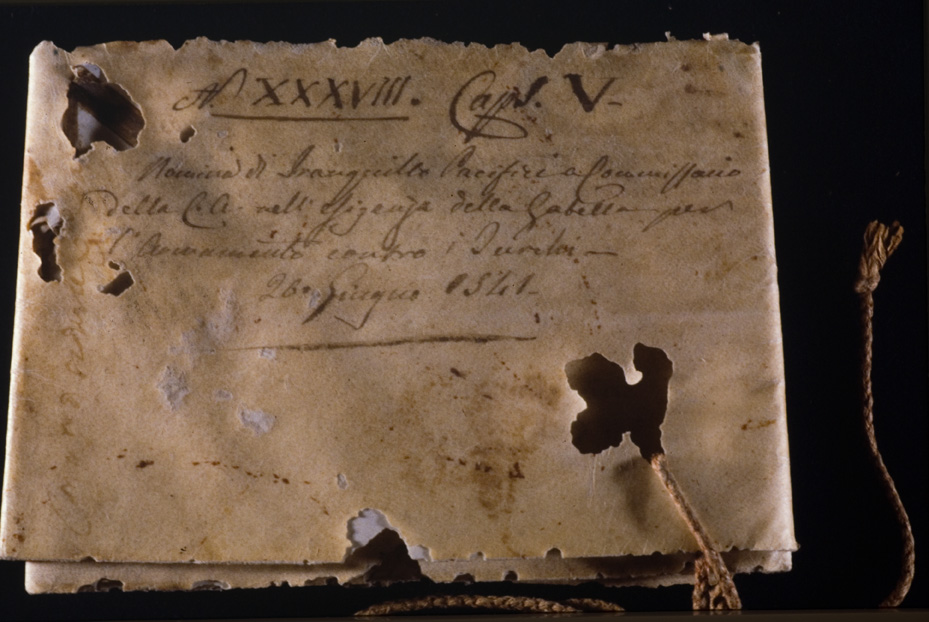 N.º XXXVIII. Caps. V.
Nomina di Tranquillo Pacifici a Commissario
della C. A. nell' Esigenza della Gabella per
l'Armamento contro i Turchi –
26. Giugno 1541 –